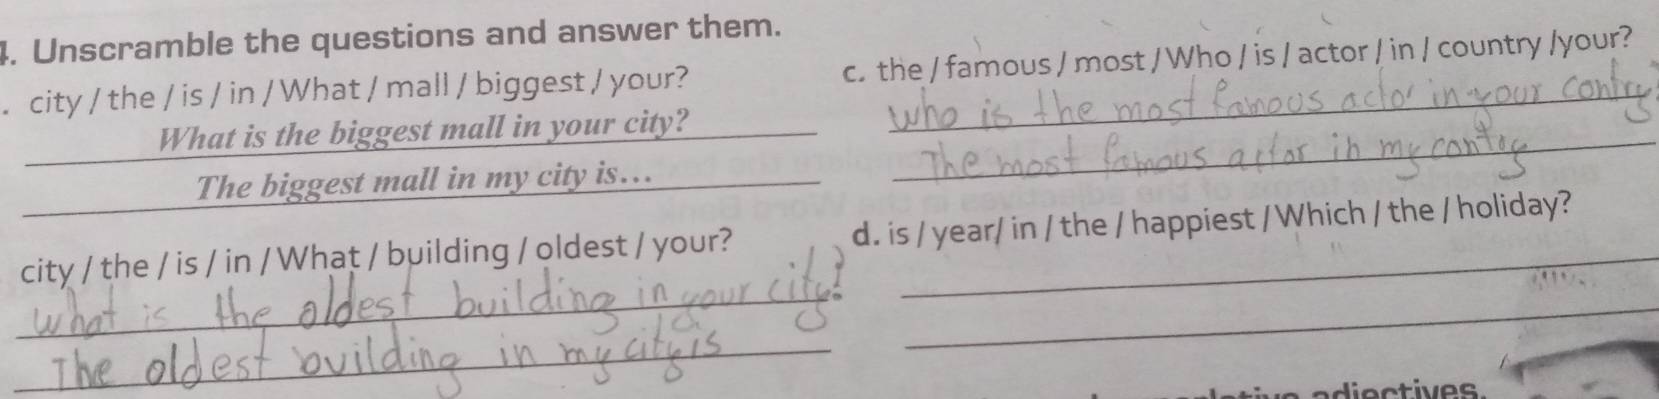 4. Unscramble the questions and answer them.
. city / the / is / in / What / mall / biggest / your?
What is the biggest mall in your city?
The biggest mall in my city is...
city / the / is / in / What / building / oldest / your?
What is the oldest building in your city?
The oldest building in my city is
c. the / famous / most / Who / is / actor / in / country /your?
who is the most famous actor in your contry?
The most famous actor in my
d. is / year/ in / the / happiest / Which / the / holiday?
adjectives.